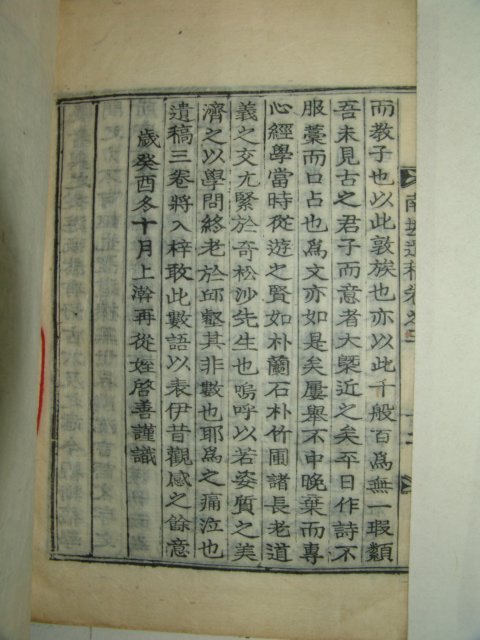 而教子也以此敦族也亦以此千般百爲無一瑕纇
吾未見古之君子而意者大槩近之矣平日作詩不
服藁而口占也爲文亦如是矣屢舉不中晚棄而專
心經學當時從遊之賢如朴蘭石朴竹圃諸長老道
義之交尤緊於奇松沙先生也嗚呼以若姿質之美
濟之以學問終老於邱壑其非數也耶爲之痛泣也
遺稿三卷將入梓敢此數語以表伊昔觀感之餘意
歲癸酉冬十月上澣再從姪啓善謹識